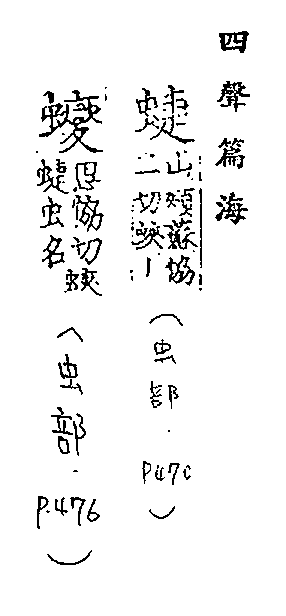 四聲篇海
蜨
山頰蘇協
二切蛺丨
(虫部.
思協切蛺
蜨虫名
(虫部.P.476)